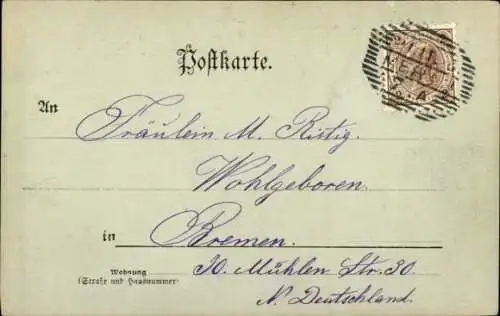 Postkarte.
An
Fräulein M. Ristig.
Wohlgeboren.
in Bremen.
Wohnung
(Straße und Hausnummer)
30. Mühlen-Str. 30
N. Deutschland.